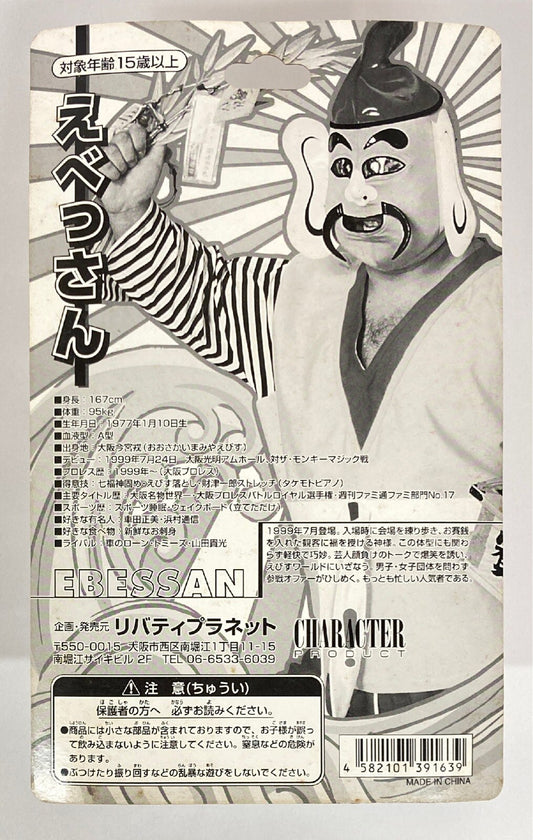 対象年齢15歳以上
えべっさん
■身長：167cm
■体重：95kg
■生年月日：1977年1月10日生
■血液型：A型
■出身地：大阪今宮戎（おおさかいまみやえびす）
■デビュー：1999年7月24日　大阪光明アムホール、対ザ・モンキーマジック戦
■プロレス歴：1999年〜（大阪プロレス）
■得意技：七福神固め・えびす落とし・財津一郎ストレッチ（タケモトピアノ）
■主要タイトル歴：大阪名物世界一・大阪プロレスバトルロイヤル選手権・週刊ファミ通ファミ通部門No.17
■スポーツ歴：スポーツ睡眠・ウェイクボード（立てただけ）
■好きな有名人：車田正美・浜村通信
■好きな食べ物：新鮮なお刺身
■ライバル：車のローン・トミーズ・山田貴光
1999年7月登場。入場時に会場を練り歩き、お賽銭
を入れた観客に福を授ける神様。この体型にも関わ
らず軽快で巧妙。芸人顔負けのトークで爆笑を誘い、
えびすワールドにいざなう。男子・女子団体を問わず
参戦オファーがひしめく。もっとも忙しい人気者である。
EBESSAN
企画・発売元 リバティプラネット
〒550-0015　大阪市西区南堀江1丁目11-15
南堀江サイキビル 2F　TEL 06-6533-6039
CHARACTER
PRODUCT
⚠ 注　意(ちゅうい)
保護者の方へ　必ずお読みください。
●商品には小さな部品が含まれておりますので、お子様が誤っ
て飲み込まないように注意してください。窒息などの危険が
あります。
●ぶつけたり振り回すなどの乱暴な遊びをしないでください。
4 582101 391639
MADE IN CHINA